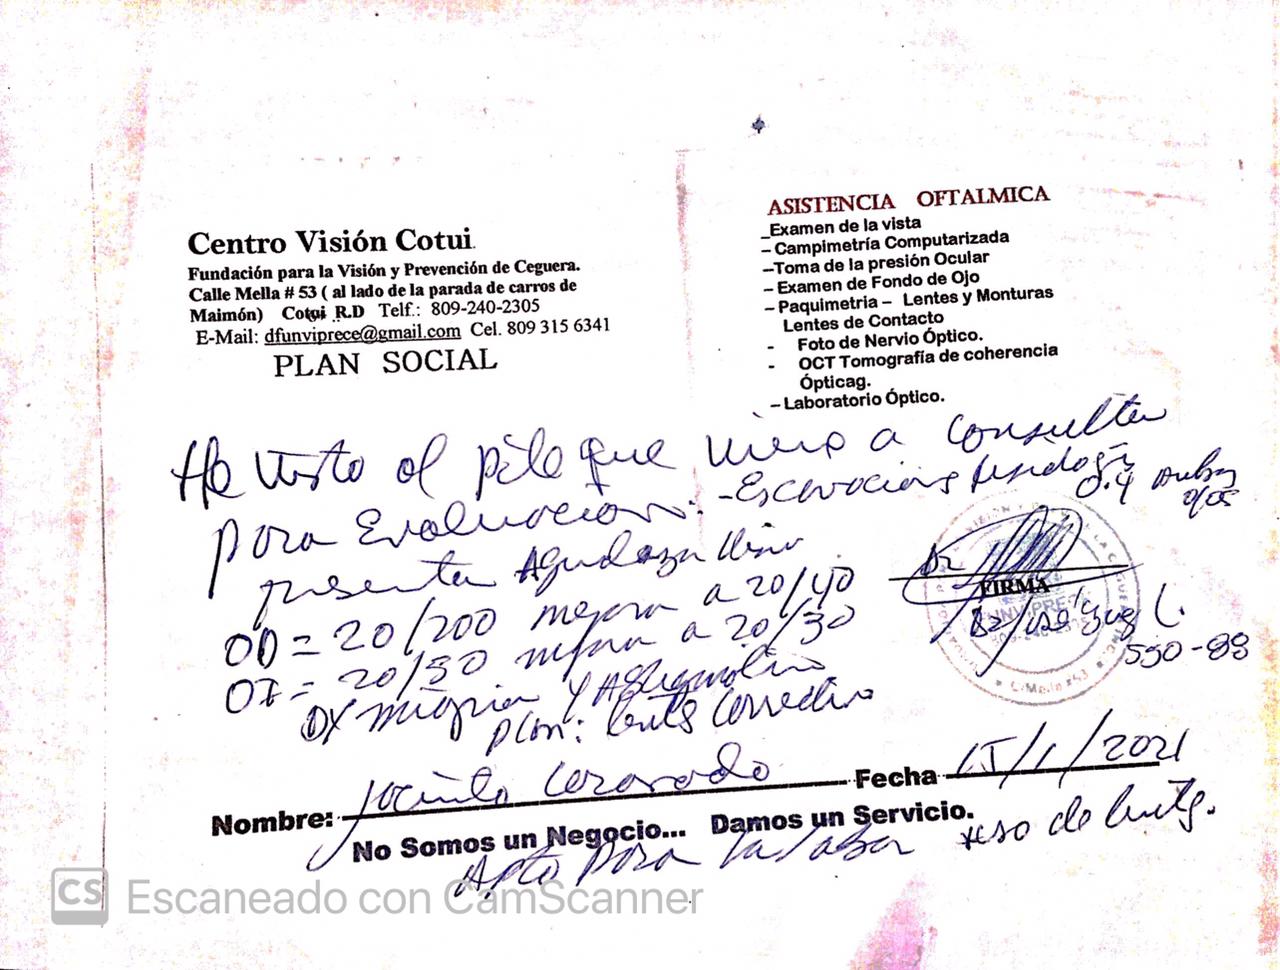 Centro Visión Cotui.
Fundación para la Visión y Prevención de Ceguera.
Calle Mella # 53 ( al lado de la parada de carros de
Maimón) Cotui R.D Telf.: 809-240-2305
E-Mail: dfunviprece@gmail.com Cel. 809 315 6341
PLAN SOCIAL
ASISTENCIA OFTALMICA
_Examen de la vista
– Campimetría Computarizada
–Toma de la presión Ocular
– Examen de Fondo de Ojo
– Paquimetria – Lentes y Monturas
Lentes de Contacto
- Foto de Nervio Óptico.
- OCT Tomografía de coherencia
Ópticag.
– Laboratorio Óptico.
He visto al pte que vino a consulta
para Evaluacion.
- Excavaciones 0.4 ambos
presenta Agudeza
OD = 20/200 mejora a 20/40
OI = 20/50 mejora a 20/30
DX miopia y Astigmatismo
plan: lents
Dr
FIRMA
550-88
Nombre: Jacinto Fecha 15/1/2021
No Somos un Negocio... Damos un Servicio.
Apto para uso de lents.
CS Escaneado con CamScanner